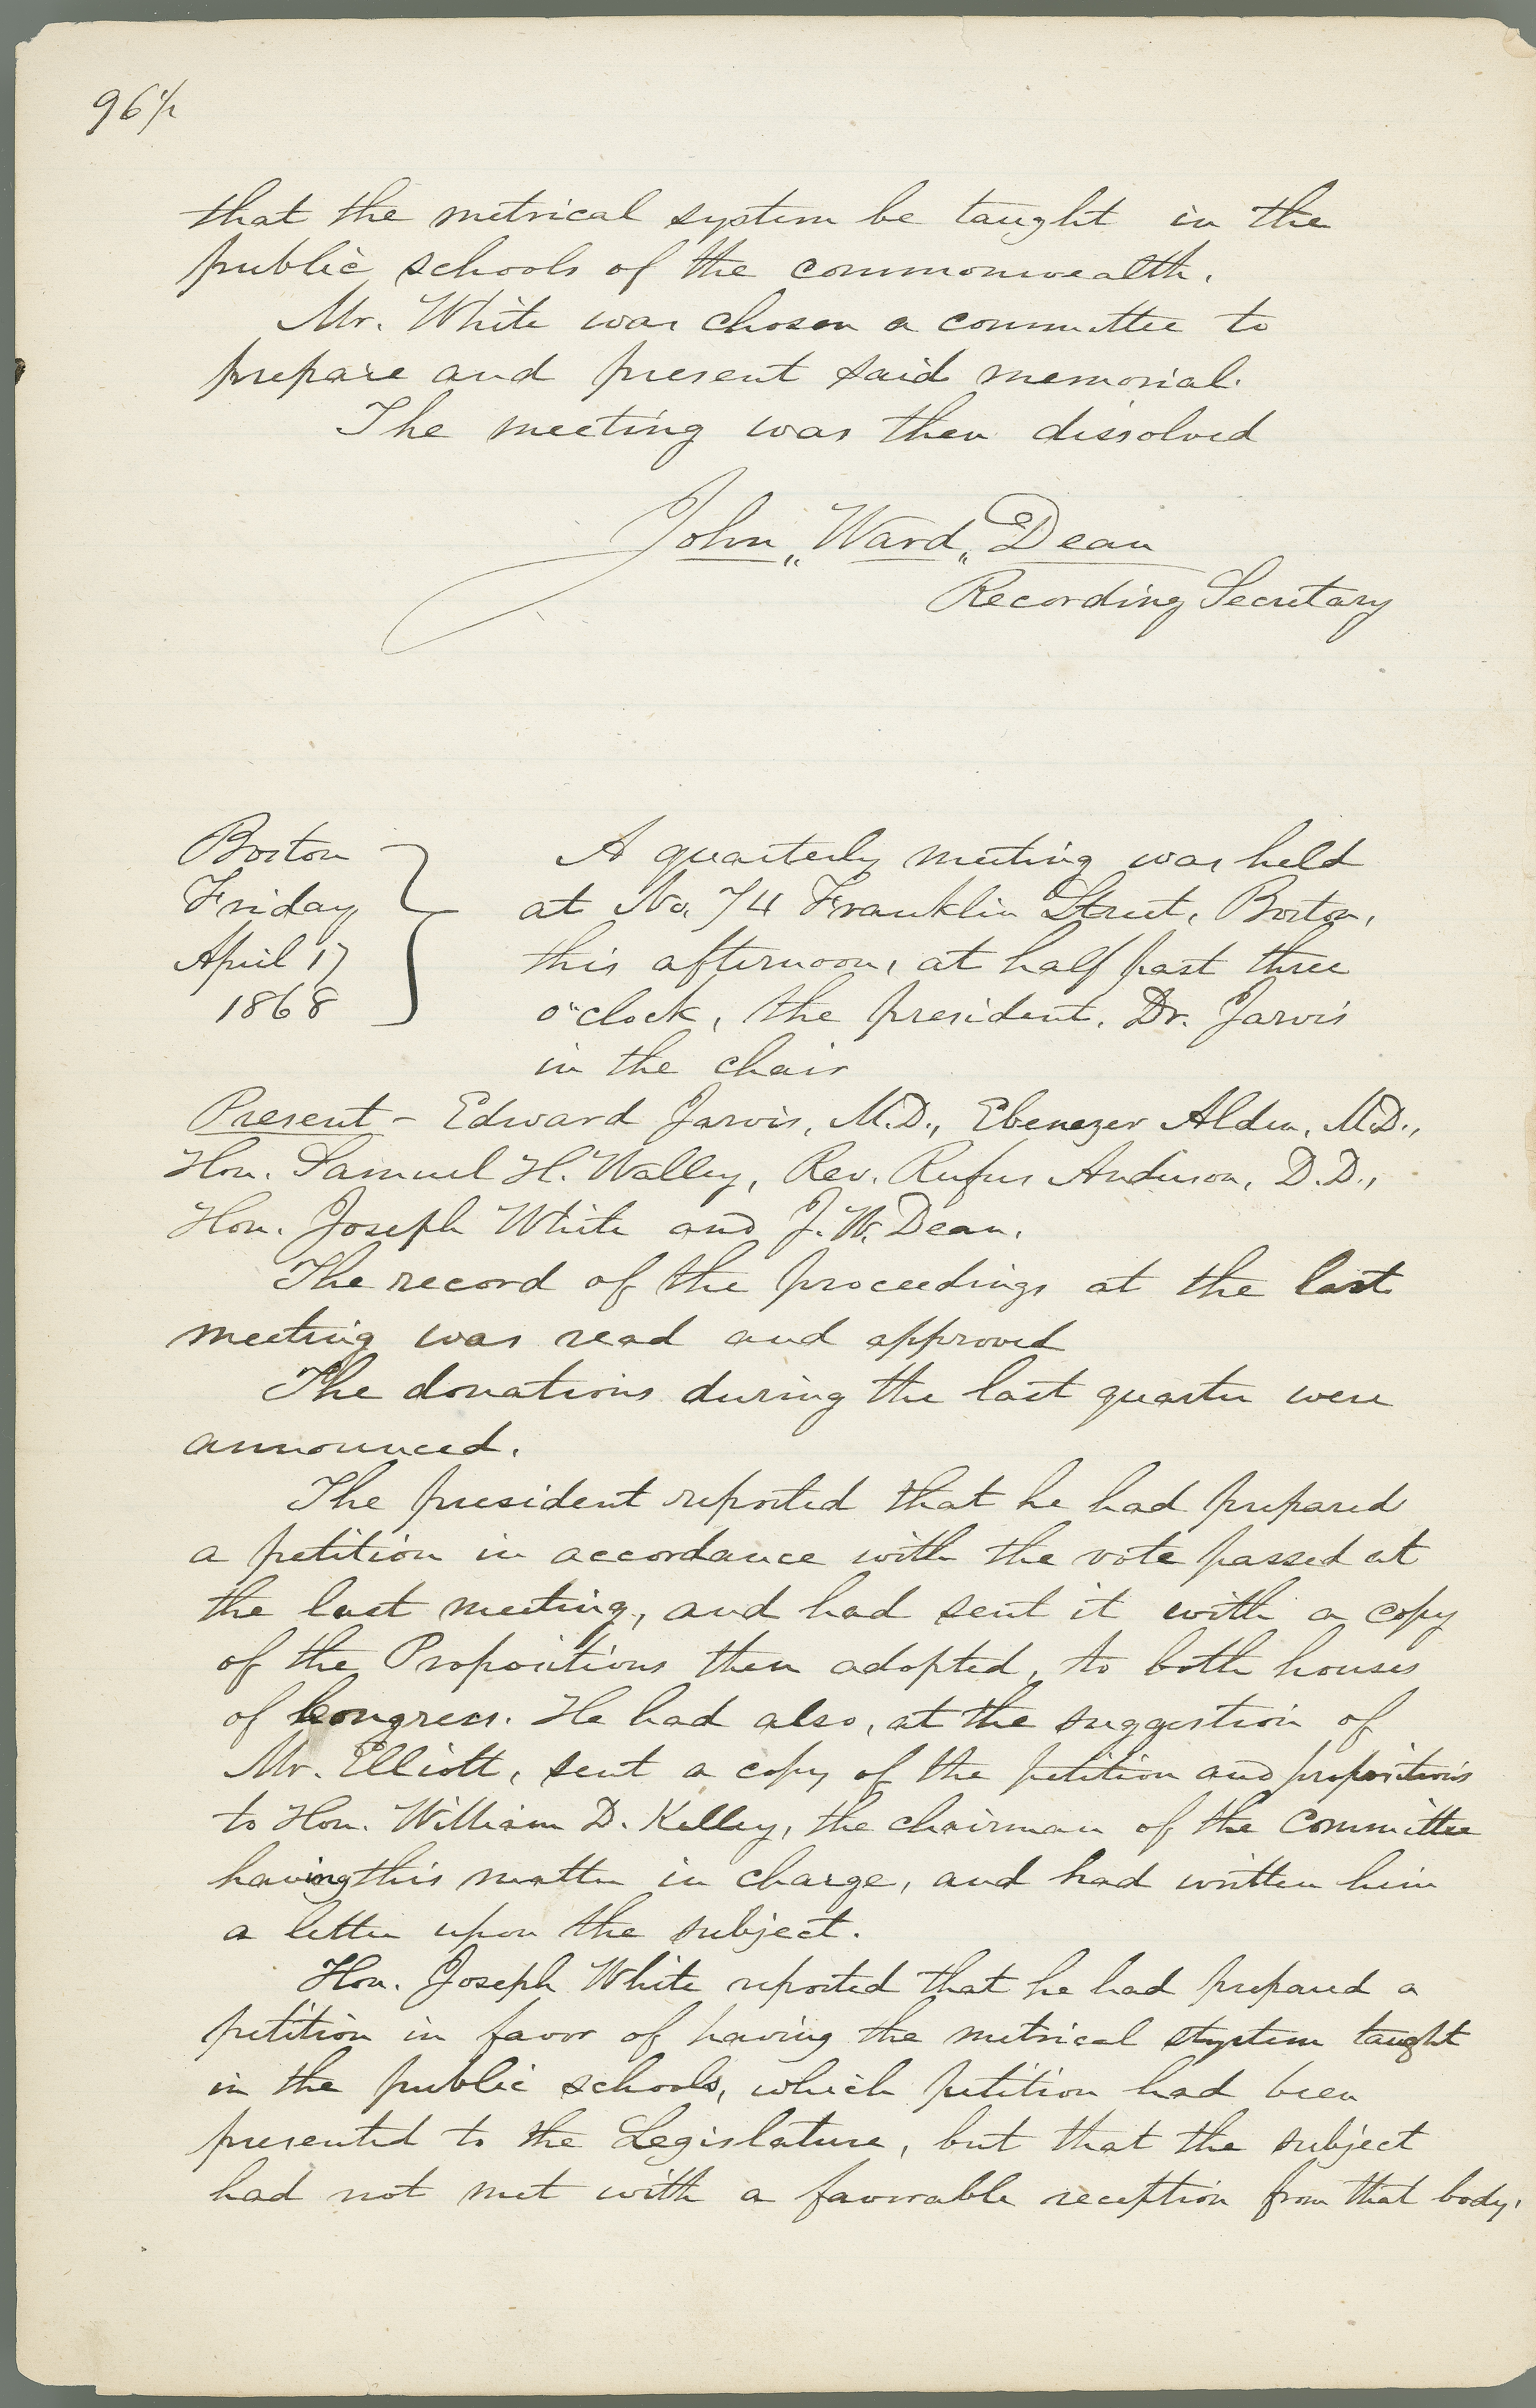 96½
that the metrical system be taught in the
public schools of the commonwealth.
Mr. White was chosen a committee to
prepare and present said memorial.
The meeting was then dissolved
John Ward Dean
Recording Secretary
Boston
Friday
April 17
1868
A quarterly meeting was held
at No. 74 Franklin Street, Boston,
this afternoon, at half past three
o'clock, the president, Dr. Jarvis
in the chair
Present - Edward Jarvis, M.D., Ebenezer Alden, M.D.,
Hon. Samuel H. Walley, Rev. Rufus Anderson, D.D.,
Hon. Joseph White and J. W. Dean.
The record of the proceedings at the last
meeting was read and approved
The donations during the last quarter were
announced.
The president reported that he had prepared
a petition in accordance with the vote passed at
the last meeting, and had sent it with a copy
of the Propositions then adopted, to both houses
of Congress. He had also, at the suggestion of
Mr. Elliott, sent a copy of the petition and propositions
to Hon. William D. Kelley, the chairman of the Committee
having this matter in charge, and had written him
a letter upon the subject.
Hon. Joseph White reported that he had prepared a
petition in favor of having the metrical system taught
in the public schools, which petition had been
presented to the Legislature, but that the subject
had not met with a favorable reception from that body.